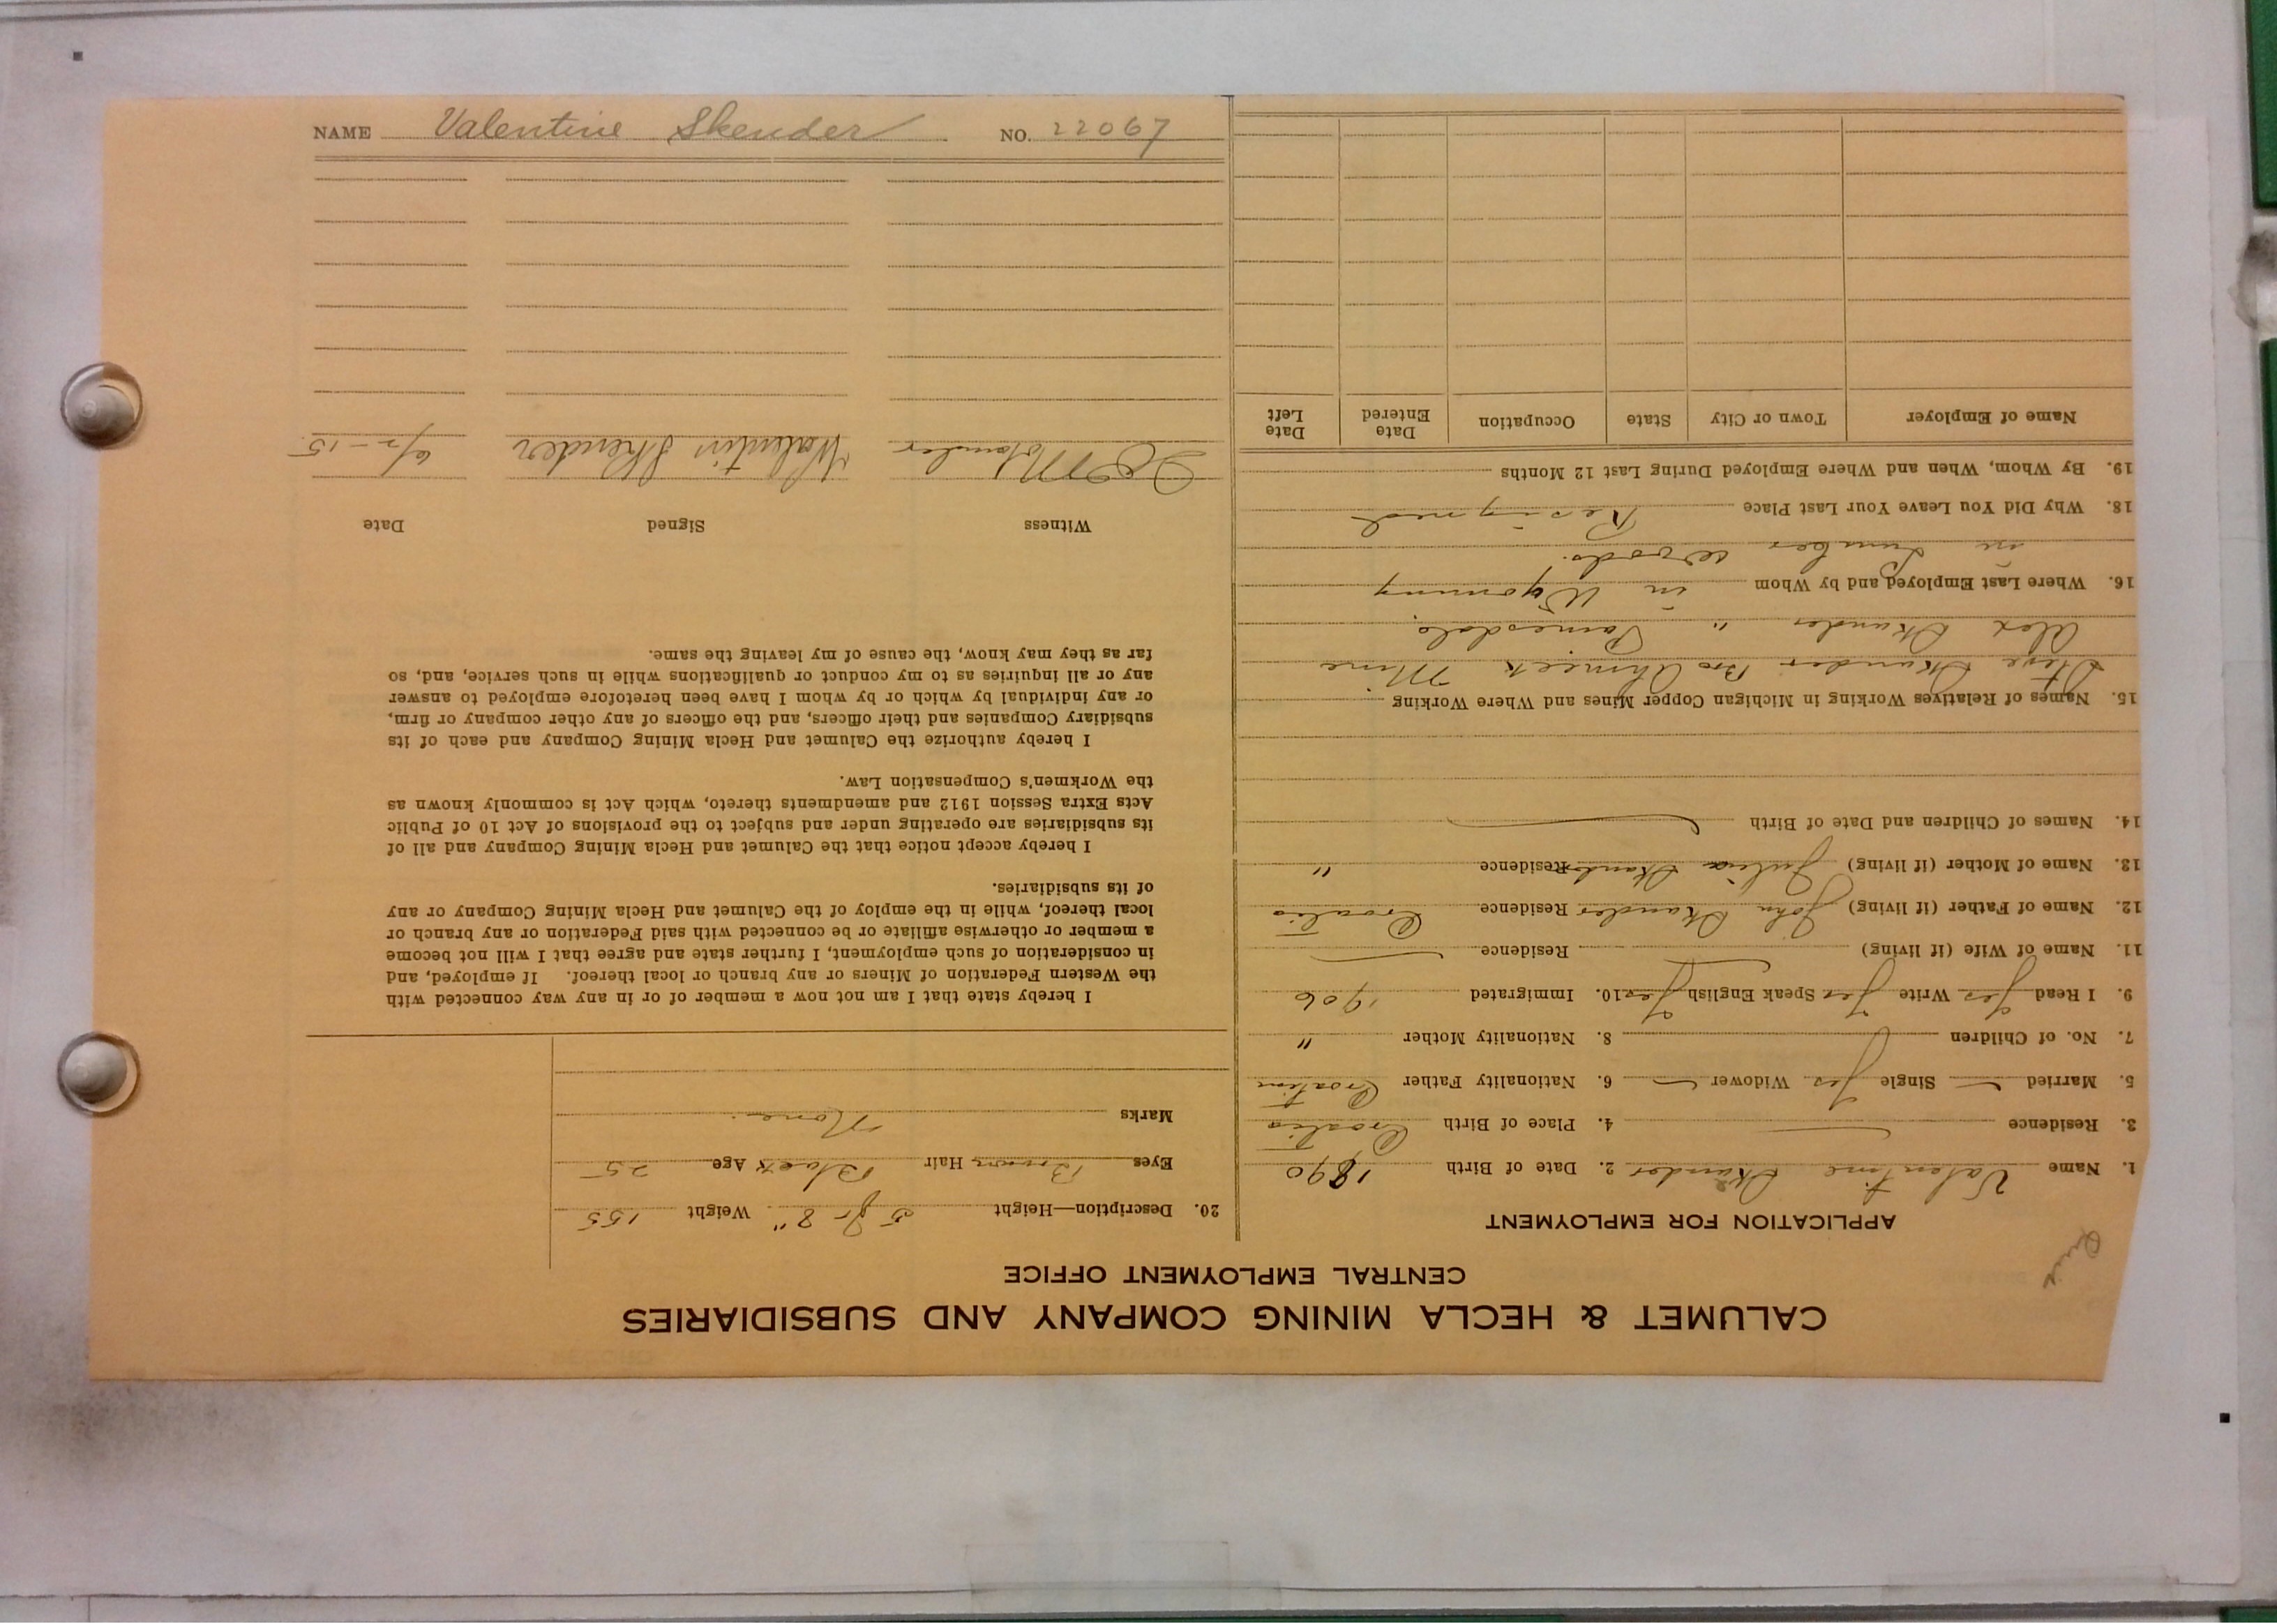 CALUMET & HECLA MINING COMPANY AND SUBSIDIARIES
CENTRAL EMPLOYMENT OFFICE
APPLICATION FOR EMPLOYMENT
1. Name Valentine Skender 2. Date of Birth 1890
3. Residence 4. Place of Birth Croatia
5. Married Single Yes Widower 6. Nationality Father Croatian
7. No. of Children 8. Nationality Mother "
9. I Read Yes Write Yes Speak English Yes 10. Immigrated 1906
11. Name of Wife (if living) Residence
12. Name of Father (if living) John Skender Residence Croatia
13. Name of Mother (if living) Julia Skender Residence "
14. Names of Children and Date of Birth
15. Names of Relatives Working in Michigan Copper Mines and Where Working
Steve Skender Bro Ahmeek Mine
Alex Skender " Painesdale.
16. Where Last Employed and by Whom in Wyoming
in Lumber woods.
18. Why Did You Leave Your Last Place Resigned
19. By Whom, When and Where Employed During Last 12 Months
Name of Employer Town or City State Occupation Date Entered Date Left
20. Description—Height 5 ft 8" Weight 155
Eyes Brown Hair Black Age 25
Marks None
I hereby state that I am not now a member of or in any way connected with
the Western Federation of Miners or any branch or local thereof. If employed, and
in consideration of such employment, I further state and agree that I will not become
a member or otherwise affiliate or be connected with said Federation or any branch or
local thereof, while in the employ of the Calumet and Hecla Mining Company or any
of its subsidiaries.
I hereby accept notice that the Calumet and Hecla Mining Company and all of
its subsidiaries are operating under and subject to the provisions of Act 10 of Public
Acts Extra Session 1912 and amendments thereto, which Act is commonly known as
the Workmen's Compensation Law.
I hereby authorize the Calumet and Hecla Mining Company and each of its
subsidiary Companies and their officers, and the officers of any other company or firm,
or any individual by which or by whom I have been heretofore employed to answer
any or all inquiries as to my conduct or qualifications while in such service, and, so
far as they may know, the cause of my leaving the same.
Witness Signed Date
Valentin Skender 6/2-15.
NAME Valentine Skender NO. 22067